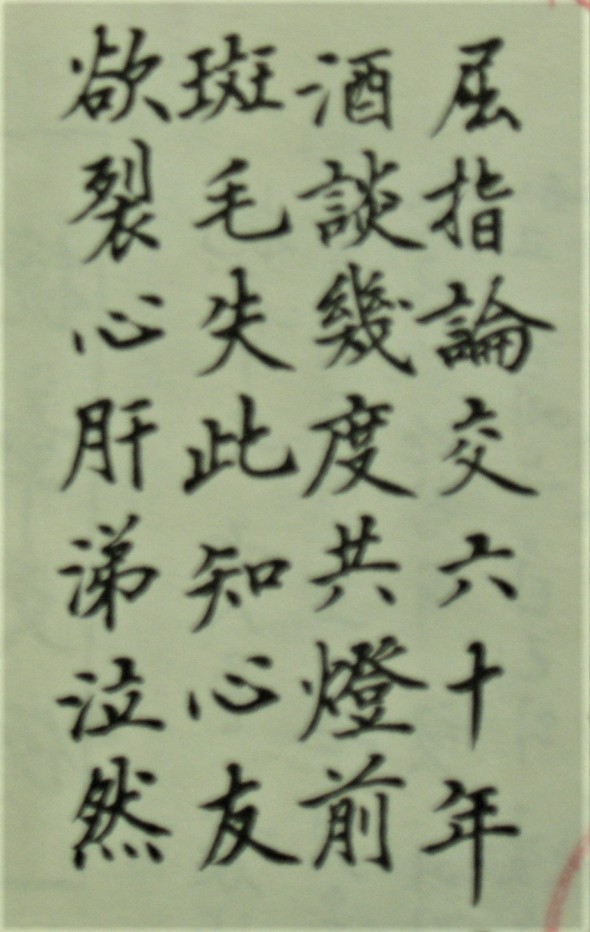 屈指論交六十年
酒談幾度共燈前
斑毛失此知心友
欲裂心肝涕泣然